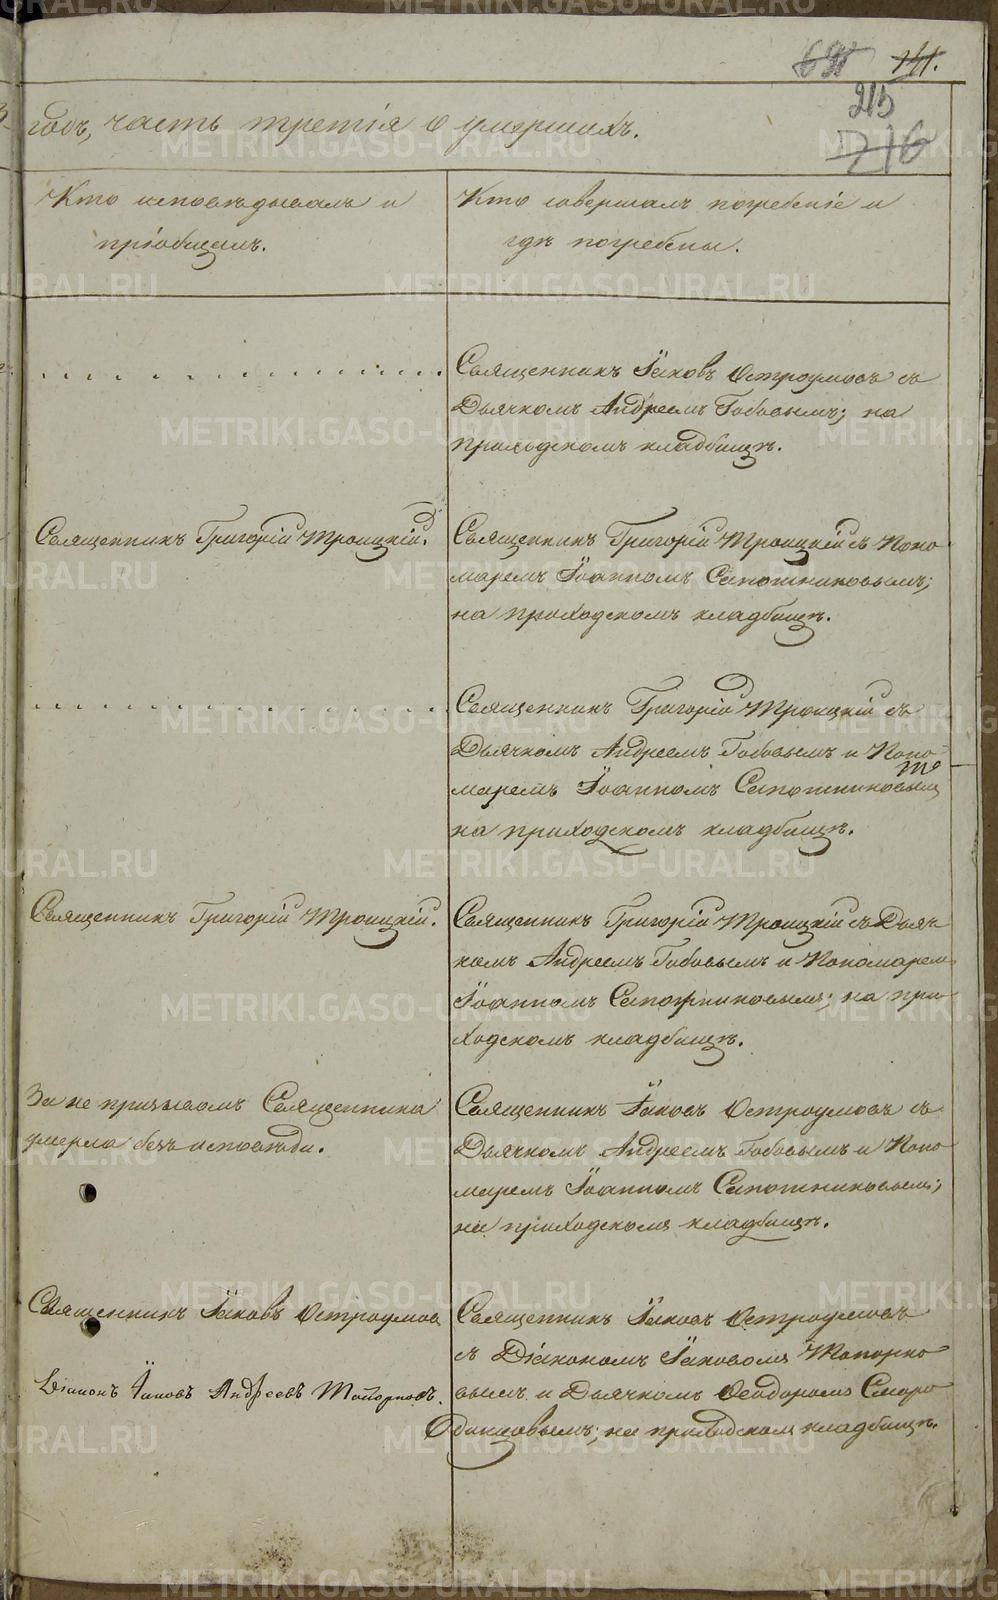 141.
215
216
годъ, часть третія о умершихъ.
Кто исповѣдывалъ и
пріобщалъ.
Кто совершалъ погребеніе и
гдѣ погребены.
Священникъ Іаковъ Остроумовъ съ
Дьячкомъ Андреемъ Бобовымъ; на
приходскомъ кладбищѣ.
Священникъ Григорій Троицкій.
Священникъ Григорій Троицкій съ Поно
маремъ Іоанномъ Сапожниковымъ;
на приходскомъ кладбищѣ.
Священникъ Григорій Троицкій съ
Дьячкомъ Андреемъ Бобовымъ и Поно-
маремъ Іоанномъ Сапожниковымъ
на приходскомъ кладбищѣ.
Священникъ Григорій Троицкій.
Священникъ Григорій Троицкій съ Дьяч
комъ Андреемъ Бобовымъ и Пономаремъ
Іоанномъ Сапожниковымъ; на при-
ходскомъ кладбищѣ.
За не призывомъ Священника
умерла безъ исповѣди.
Священникъ Іаковъ Остроумовъ съ
Дьячкомъ Андреемъ Бобовымъ и Поно
маремъ Іоанномъ Сапожниковымъ;
на приходскомъ кладбищѣ.
Священникъ Іаковъ Остроумов
Діаконъ Іаковъ Андреевъ Топорковъ.
Священникъ Іаковъ Остроумовъ
съ Діакономъ Іаковомъ Топорко
вымъ и Дьячкомъ Ѳеодоромъ Смаро
динцовымъ; на приходскомъ кладбищѣ.
METRIKI.GASO-URAL.RU